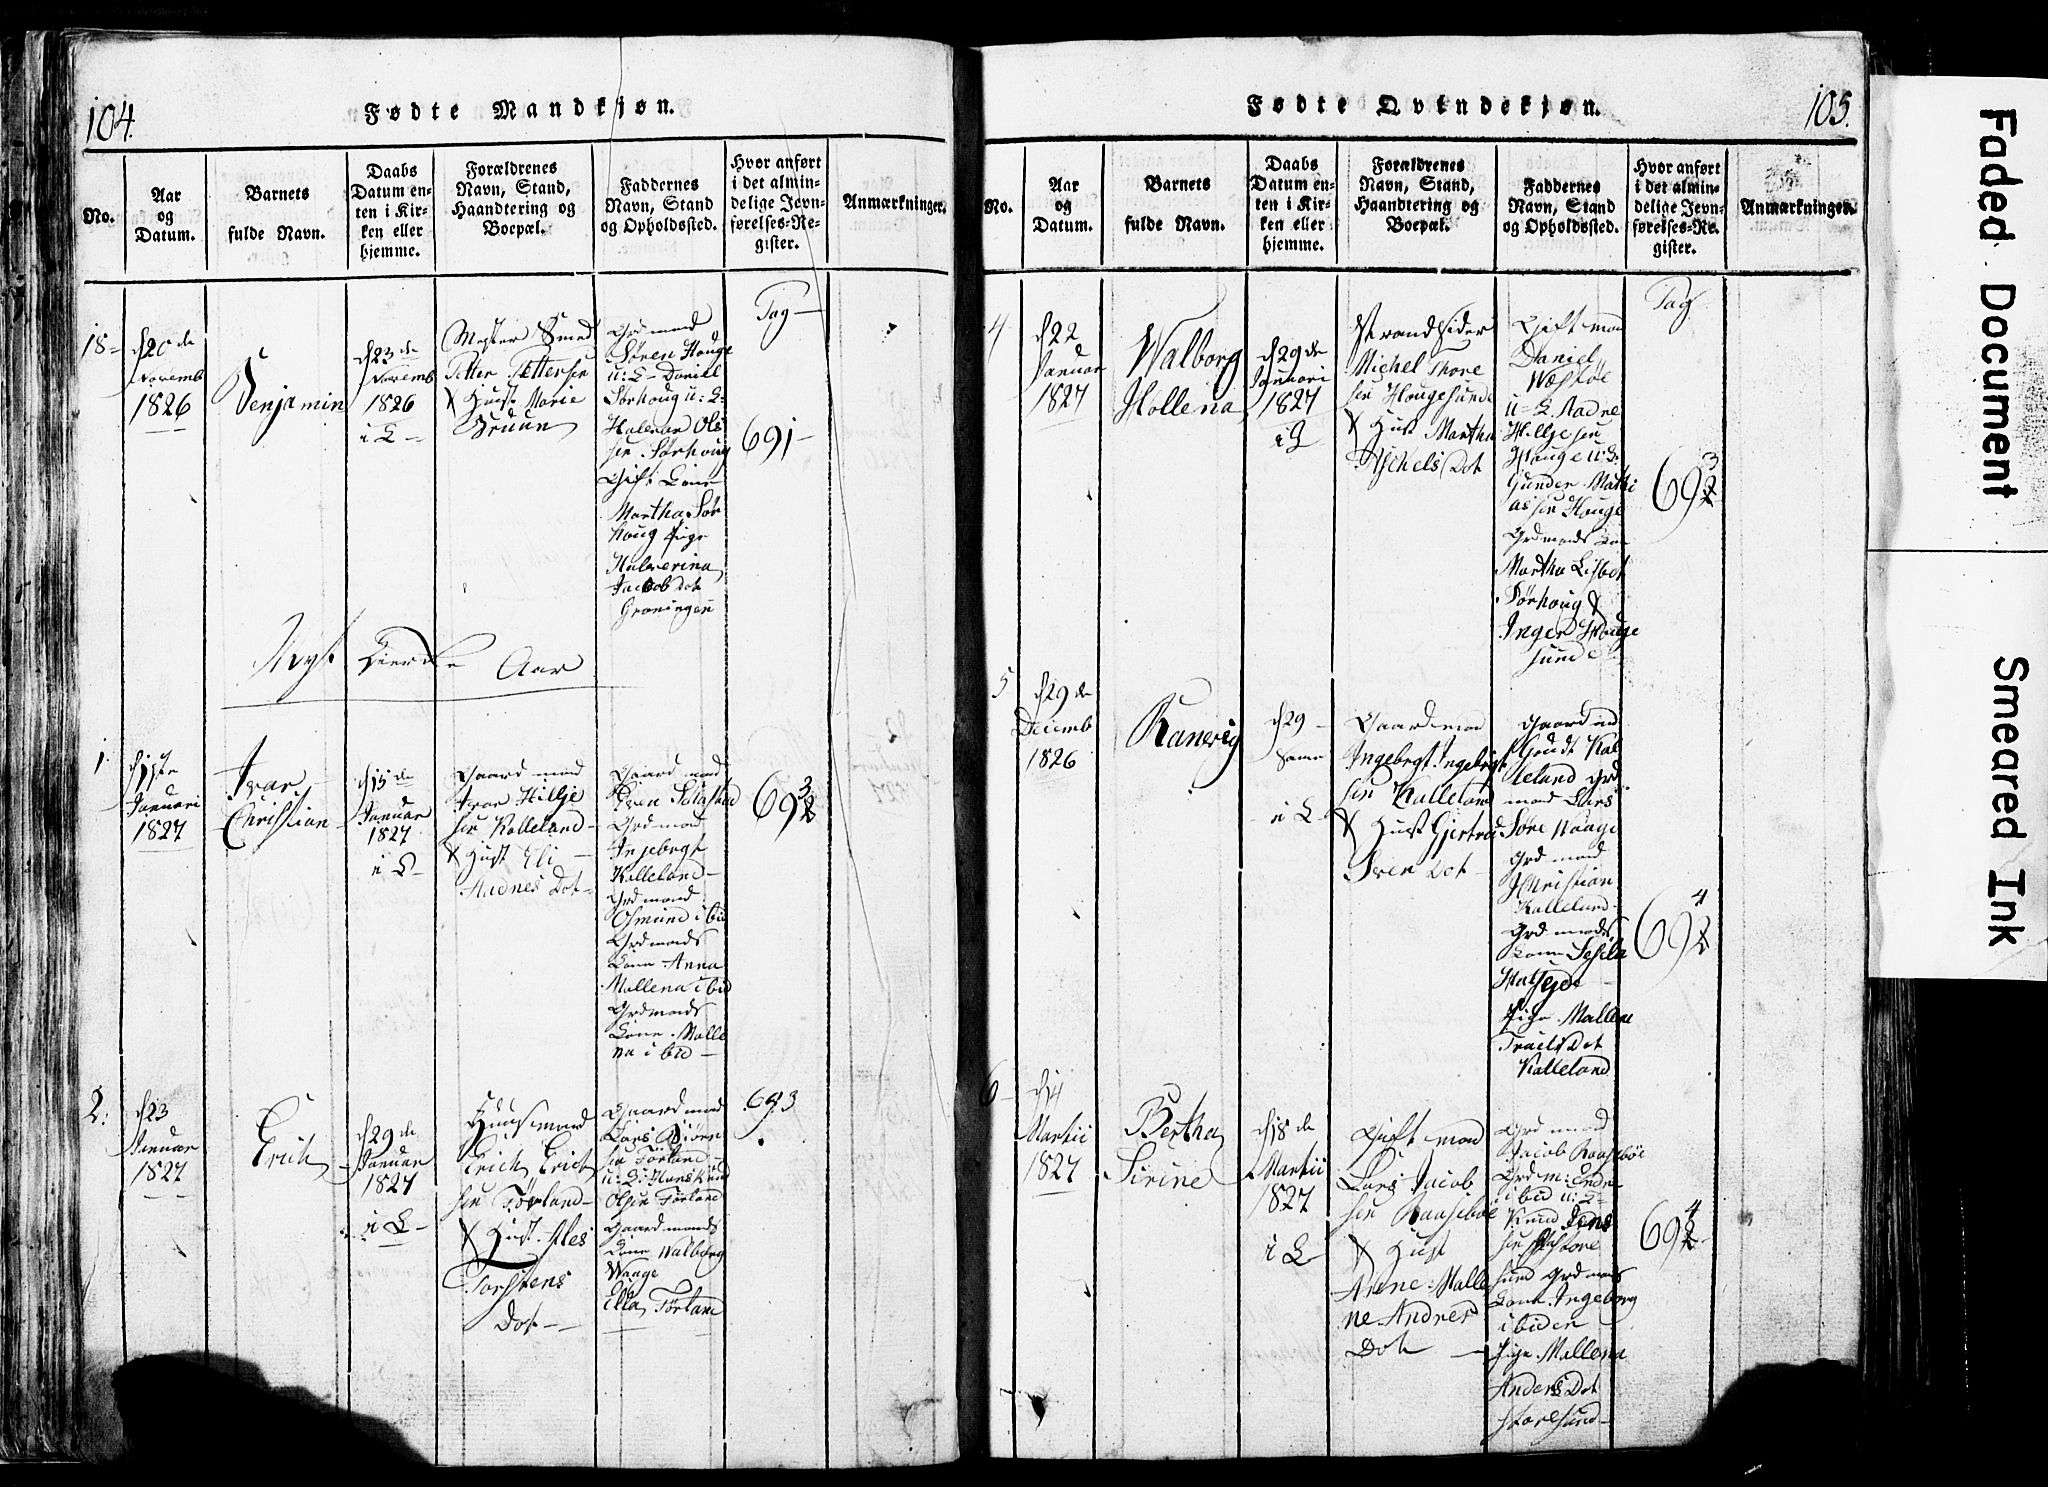 104.
Fødte Mandkjøn.
No.
Aar
og
Datum.
Barnets
fulde Navn.
Daabs
Datum en-
ten i Kir-
ken eller
hjemme.
Forældrenes
Navn, Stand,
Haandtering og
Boepæl.
Faddernes
Navn, Stand
og Opholdssted.
Hvor anført
i det almin-
delige Jevn-
førelses-Re-
gister.
Anmærkninger.
18-
d 20de
Novemb
1826
Benjamin
d 23de
Novemb
1826
i K-
Mester Smed
Petter Pettersen
& Hust Marie
Bruun
Grdmand
Søren Houge
u: K- Daniel
Sørhoug u: K-
Halvor Ols
sen Sørhoug
Gift Kone
Martha Sør
houg Pige
Halverina
Jacob Dot
Groningen
Tag-
691-
Nyt Kierke Aar
1.
d 11te
Januari
1827
Ivar
Christian
d 15de
Januar
1827
i K-
Gaardmand
Ivar Hillje
sen Kalleland-
& Hust Eli-
Aadnes Dot-
Gaardmand
Grdmand
Ingebrgt
Kalleland-
Grdmand
Osmund ibid
Grdmands
Kone Anna
Mallena ibid
Grdmands
Kone Malle
na ibid-
693
2.
d 23
Januar
1827
Erich
d 29de
Januar
1827
i K-
Huusmand
Erich Erich
sen Førland-
& Hust Ales
Torstens
Dot-
Gaardmand
Lars Biørn
sen Førland-
u: K: Hans Knud
Olsen Førland
Gaardmands
Kone Walborg
Waage
Ella Førland
693
105.
Fødte Qvindekjøn.
No.
Aar
og
Datum.
Barnets
fulde Navn.
Daabs
Datum en-
ten i Kir-
ken eller
hjemme.
Forældrenes
Navn, Stand,
Haandtering og
Boepæl.
Faddernes
Navn, Stand
og Opholdssted.
Hvor anført
i det almin-
delige Jevn-
førelses-Re-
gister.
Anmærkninger.
4
d 22
Januar
1827
Walborg
Hollena
d 29de
Januari
1827
i K
Strandsider
Michel Thore
sen Hougesund
& Hust Martha
Michels Dot
Gift mand
Daniel
Wæstøe
u- K. Aadne
Hilljesen
Houge u: K-
Gunder Mathi
assen Houge
Grdmands Kone
Martha Lisbet
Sørhoug &
Inger Houge
sund
Tag
693
5
d 29de
Decemb
1826
Ranveig
d 29-
Samme
i K-
Gaardmand
Ingebrgt Ingebrigt
sen Kalleland
& Hust Gjertrud
Sven Dot
Gaardmd
Knudt Kal
leland Grd
mand Lars
Søre Waage
Grdmand
Christian
Kalleland-
Grdmands
Kone
Pige Mallene
Traels Dot
Kalleland
694
6
d 14
Martii
1827
Bertha
Sirine
d 18de
Martii
1827
i K-
Gift mand
Lars Jacob
sen Raasebøe
& Hust
Arene Malle
ne Anders
Dot-
Grdmand
Jacob Raasebøe
Grdm: Endre
ibid u: K-
Knud Jens
sen Store
sund Grdmands
Kone Ingeborg
ibiden
Pige Mallena
Anders Dot
Storesund-
694
Faded Document
Smeared Ink